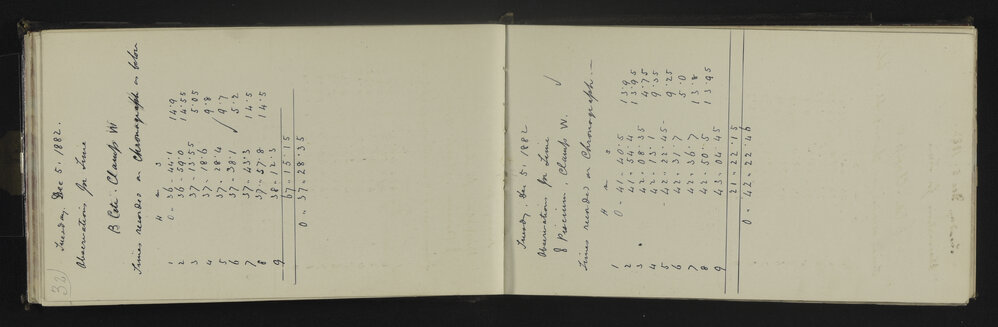 Tuesday, Dec 5. 1882.
Observations for Time
B Ceti: Clamp W
Times recorded on Chronograph as below
H m s
1 0 - 36 - 44.1 14.9
2 36 - 59.0 14.55
3 37 - 13.55 5.05
4 37 - 18.6 9.8
5 37 - 28.4 9.7
6 37 - 38.1 5.2
7 37 - 43.3 14.5
8 37 - 57.8 14.5
9 38 - 12.3
67 - 15.15
0 - 37 - 28.35
Tuesday, Dec 5. 1882
Observations for Time
δ Piscium. Clamp W.
Times recorded on Chronograph:—
H m s
1 0 - 41 - 40.5 13.9
2 41 - 54.4 13.95
3 42 - 08.35 4.75
4 42 - 13.1 9.35
5 42 - 22.45 9.25
6 42 - 31.7 5.0
7 42 - 36.7 13.8
8 42 - 50.5 13.95
9 43 - 04.45
21 - 22.15
0 - 42 - 22.46